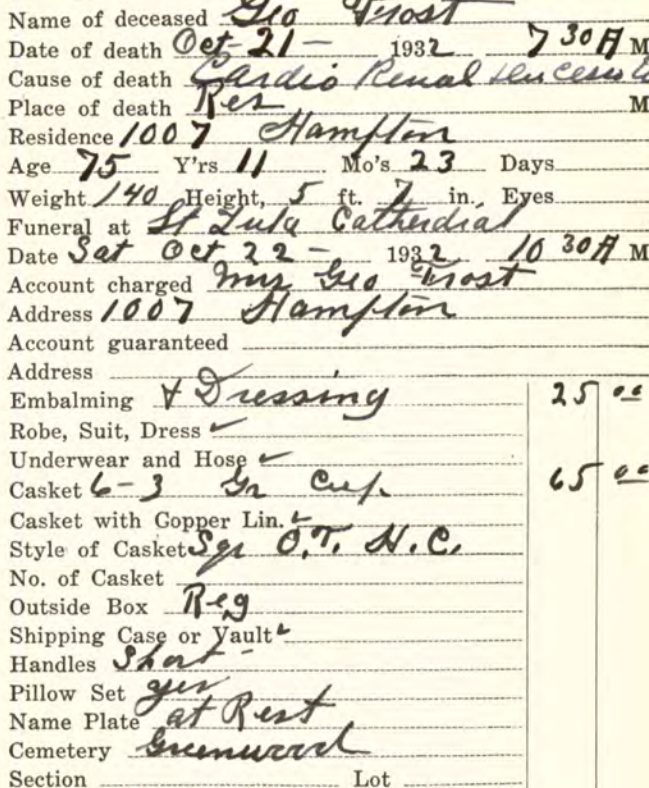 Name of deceased Geo Trost
Date of death Oct-21- 1932 7 30 A M
Cause of death Cardio Renal
Place of death Res M
Residence 1007 Hampton
Age 75 Y'rs 11 Mo's 23 Days
Weight 140 Height, 5 ft. 7 in. Eyes
Funeral at St Luke Cathedral
Date Sat Oct 22- 1932 10 30 A M
Account charged Mrs Geo Trost
Address 1007 Hampton
Account guaranteed
Address
Embalming & Dressing 25 00
Robe, Suit, Dress ✓
Underwear and Hose ✓
Casket 6-3 Gr Crep. 65 00
Casket with Copper Lin. ✓
Style of Casket Sqr O.T. H.C.
No. of Casket
Outside Box Reg
Shipping Case or Vault ✓
Handles Short-
Pillow Set yes
Name Plate at Rest
Cemetery Greenwood
Section Lot